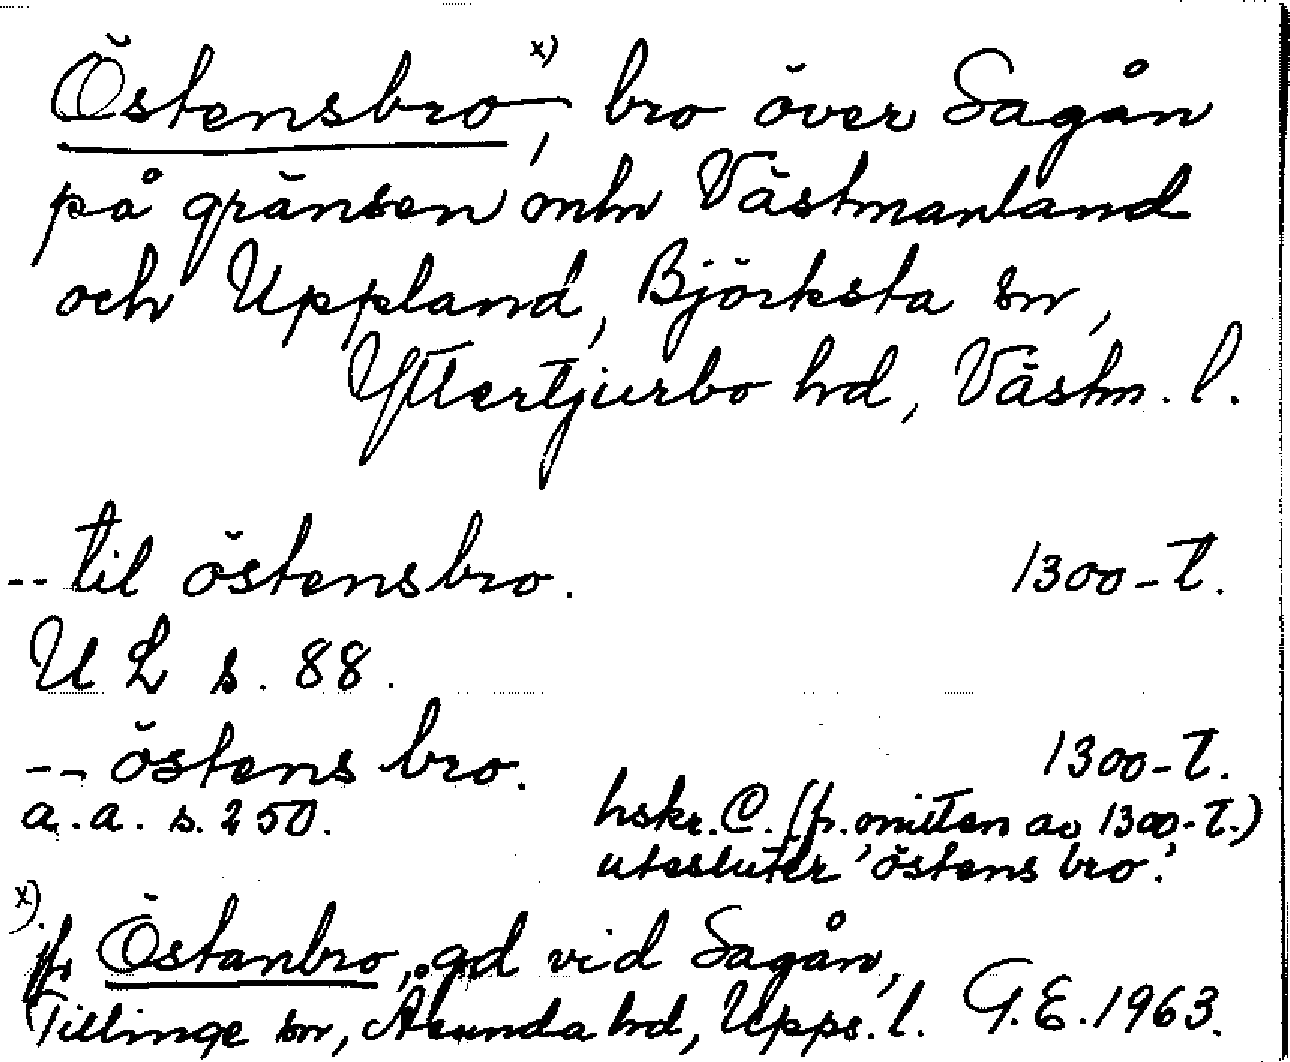 Östensbro x), bro över Sagån
på gränsen mln Västmanland
och Uppland, Björksta sn,
Yttertjurbo hd, Västm. l.
-- til östensbro. 1300-t.
U L s. 88.
-- östens bro. 1300-t.
a. a. s. 250. hskr. C. (fr. mitten av 1300-t.)
utesluter 'östens bro'.
x). jfr Östanbro, gd vid Sagån,
Tillinge sn, Åsunda hd, Upps. l. G.E. 1963.